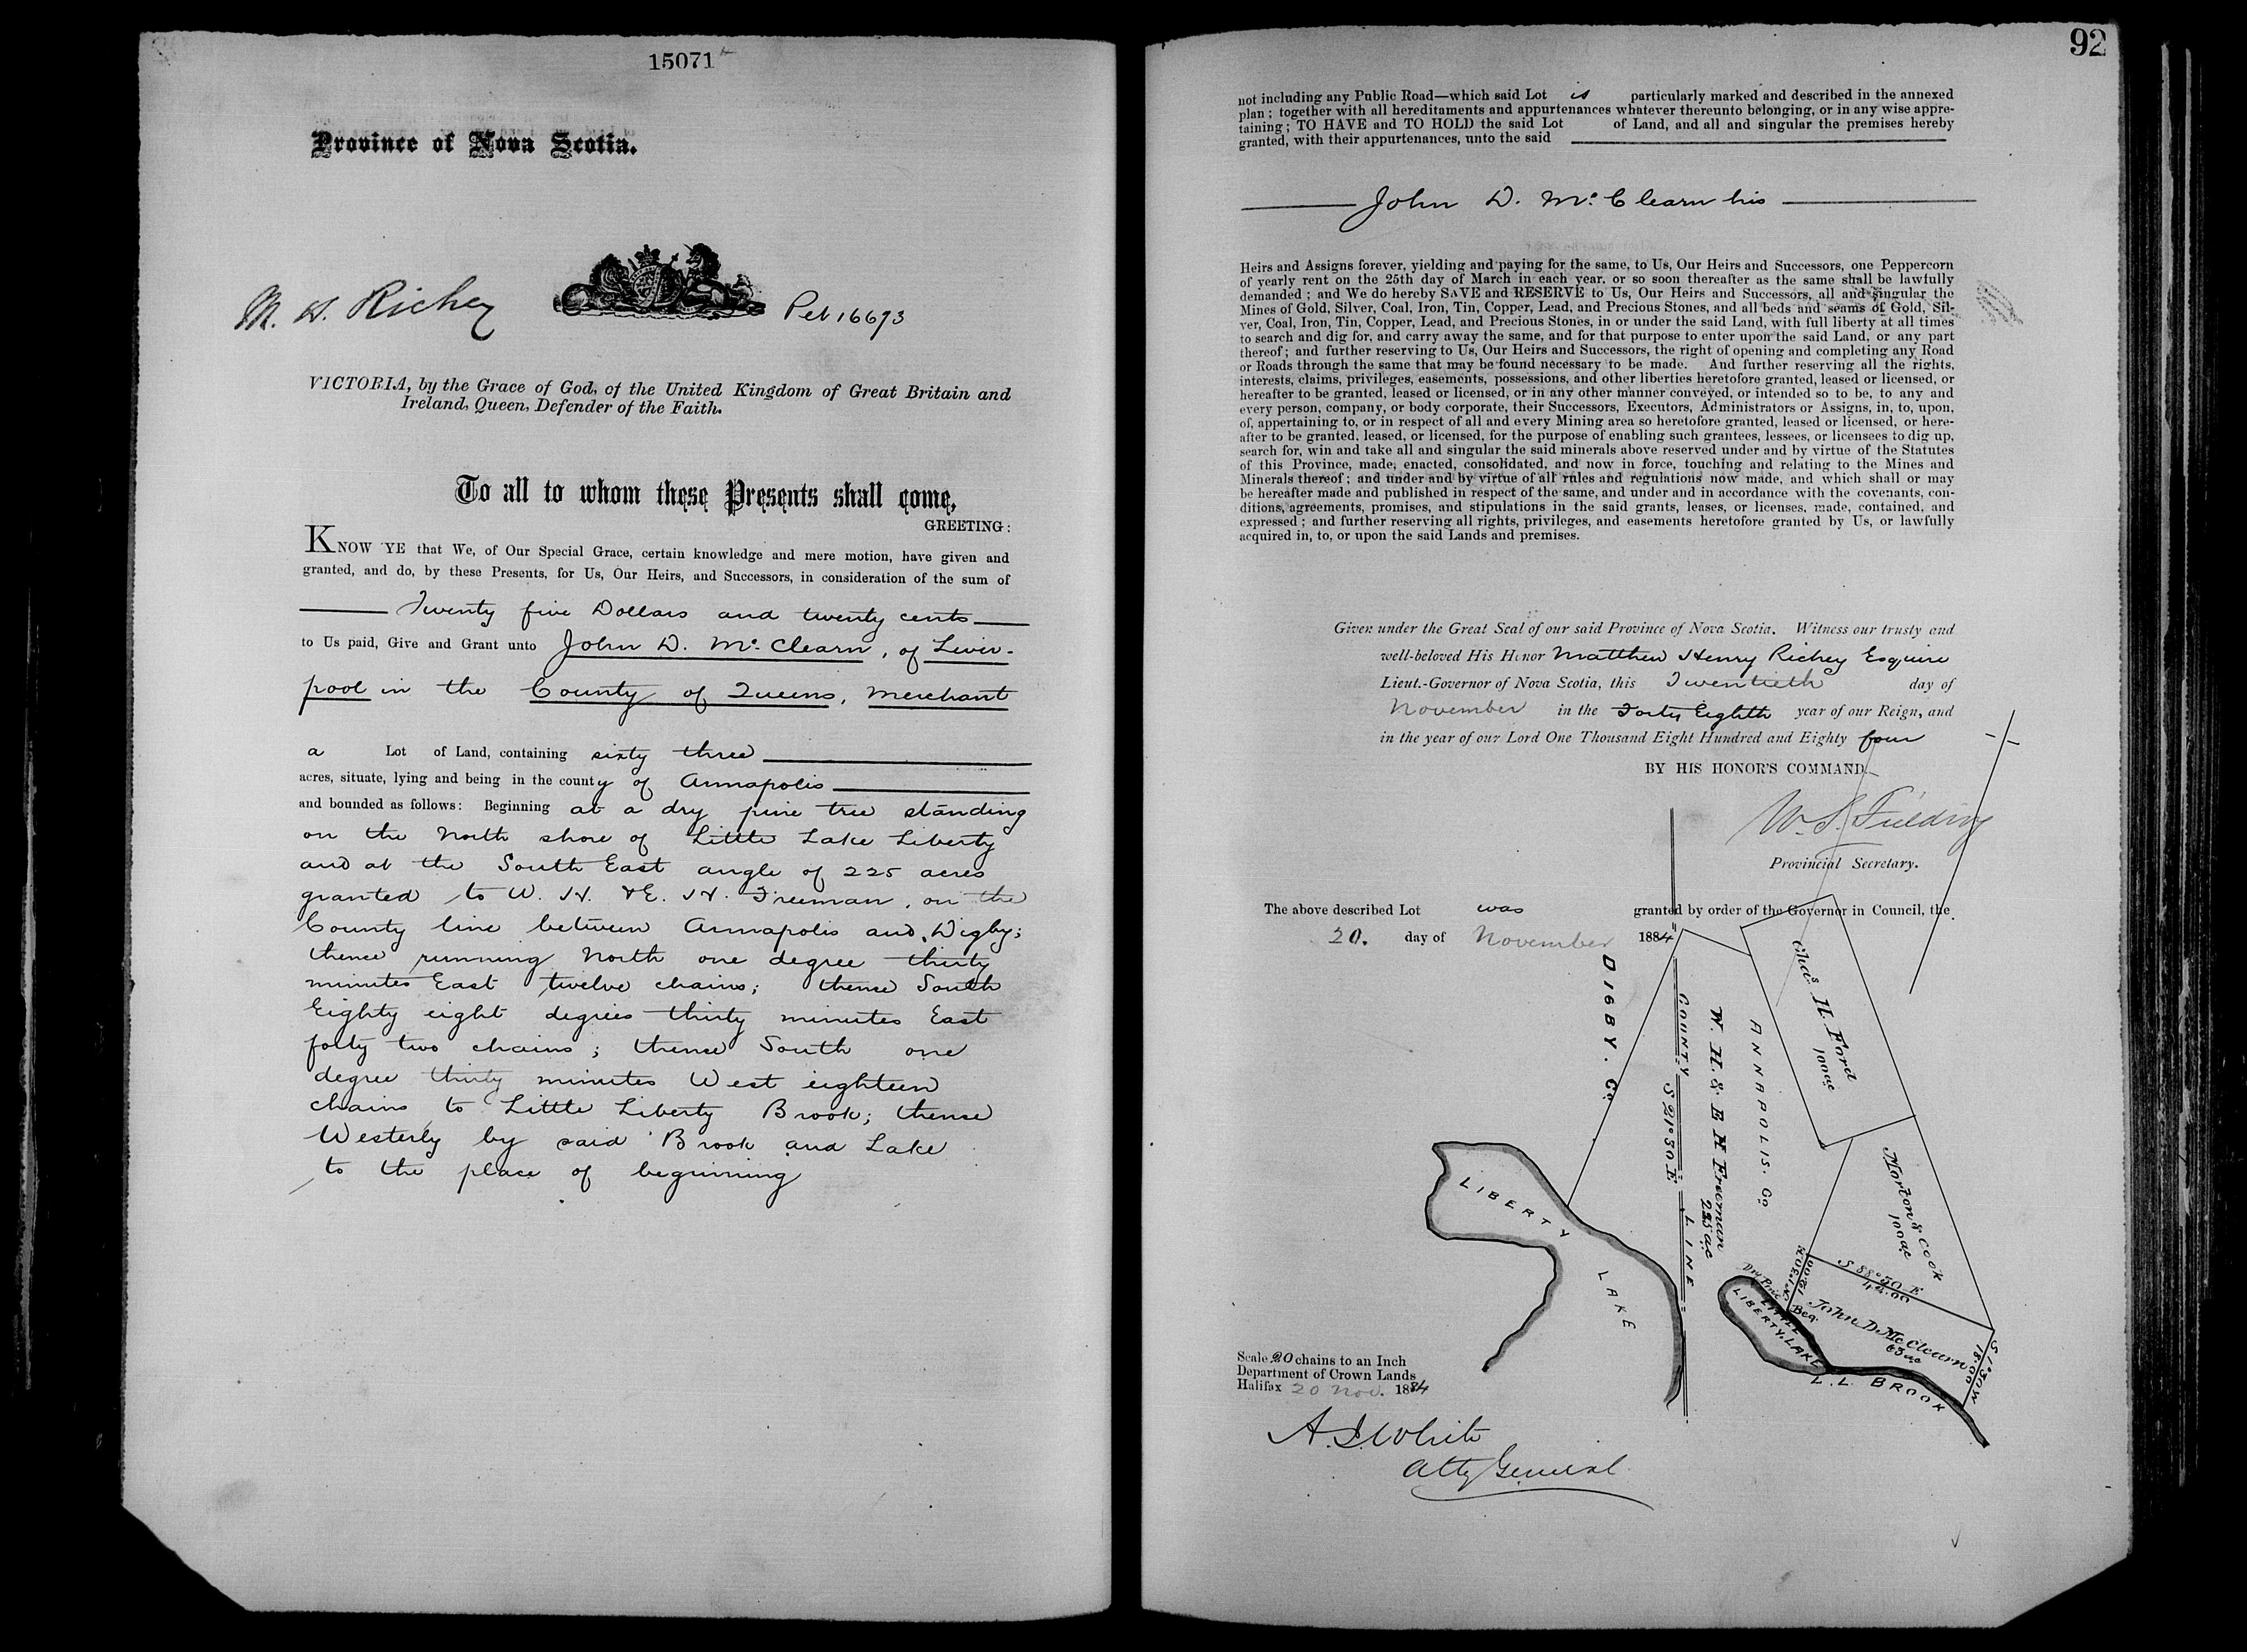 15071
Province of Nova Scotia.
M. H. Richey
Pet 16693
VICTORIA, by the Grace of God, of the United Kingdom of Great Britain and
Ireland, Queen, Defender of the Faith.
To all to whom these Presents shall come,
GREETING:
KNOW YE that We, of Our Special Grace, certain knowledge and mere motion, have given and
granted, and do, by these Presents, for Us, Our Heirs, and Successors, in consideration of the sum of
Twenty five Dollars and twenty cents
to Us paid, Give and Grant unto John D. Mc Clearn, of Liver-
pool in the County of Queens, Merchant
a Lot of Land, containing sixty three
acres, situate, lying and being in the county of Annapolis
and bounded as follows: Beginning at a dry pine tree standing
on the North shore of Little Lake Liberty
and at the South East angle of 225 acres
granted to W. H. & E. H. Freeman, on the
County line between Annapolis and Digby;
thence running North one degree thirty
minutes East twelve chains; thence South
Eighty eight degrees thirty minutes East
forty two chains; thence South one
degree thirty minutes West eighteen
chains to Little Liberty Brook; thence
Westerly by said Brook and Lake
to the place of beginning
92
not including any Public Road—which said Lot is particularly marked and described in the annexed
plan; together with all hereditaments and appurtenances whatever thereunto belonging, or in any wise appre-
taining; TO HAVE and TO HOLD the said Lot of Land, and all and singular the premises hereby
granted, with their appurtenances, unto the said
John D. Mc Clearn his
Heirs and Assigns forever, yielding and paying for the same, to Us, Our Heirs and Successors, one Peppercorn
of yearly rent on the 25th day of March in each year, or so soon thereafter as the same shall be lawfully
demanded; and We do hereby SAVE and RESERVE to Us, Our Heirs and Successors, all and singular the
Mines of Gold, Silver, Coal, Iron, Tin, Copper, Lead, and Precious Stones, and all beds and seams of Gold, Sil-
ver, Coal, Iron, Tin, Copper, Lead, and Precious Stones, in or under the said Land, with full liberty at all times
to search and dig for, and carry away the same, and for that purpose to enter upon the said Land, or any part
thereof; and further reserving to Us, Our Heirs and Successors, the right of opening and completing any Road
or Roads through the same that may be found necessary to be made. And further reserving all the rights,
interests, claims, privileges, easements, possessions, and other liberties heretofore granted, leased or licensed, or
hereafter to be granted, leased or licensed, or in any other manner conveyed, or intended so to be, to any and
every person, company, or body corporate, their Successors, Executors, Administrators or Assigns, in, to, upon,
of, appertaining to, or in respect of all and every Mining area so heretofore granted, leased or licensed, or here-
after to be granted, leased, or licensed, for the purpose of enabling such grantees, lessees, or licensees to dig up,
search for, win and take all and singular the said minerals above reserved under and by virtue of the Statutes
of this Province, made, enacted, consolidated, and now in force, touching and relating to the Mines and
Minerals thereof; and under and by virtue of all rules and regulations now made, and which shall or may
be hereafter made and published in respect of the same, and under and in accordance with the covenants, con-
ditions, agreements, promises, and stipulations in the said grants, leases, or licenses, made, contained, and
expressed; and further reserving all rights, privileges, and easements heretofore granted by Us, or lawfully
acquired in, to, or upon the said Lands and premises.
Given under the Great Seal of our said Province of Nova Scotia. Witness our trusty and
well-beloved His Honor Matthew Henry Richey Esquire
Lieut.-Governor of Nova Scotia, this Twentieth day of
November in the Forty Eighth year of our Reign, and
in the year of our Lord One Thousand Eight Hundred and Eighty four
BY HIS HONOR'S COMMAND.
W. S. Fielding
Provincial Secretary.
The above described Lot was granted by order of the Governor in Council, the
20. day of November 1884
DIGBY. Co.
COUNTY S 21° 30 E LINE
W. H. & E H Freeman
225 ac
ANNAPOLIS. Co
Chas H. Ford
100 ac
Morton & Cook
100 ac
LIBERTY LAKE
N 1° 30 E
12.00
S 88° 30 E
42.00
Dry Pine
Beg.
LITTLE
LIBERTY. LAKE
John D. Mc Clearn
63 ac
S 1° 30 W
18.00
L. L. BROOK
Scale 20 chains to an Inch
Department of Crown Lands
Halifax 20 Nov. 1884
A. J. White
Atty General